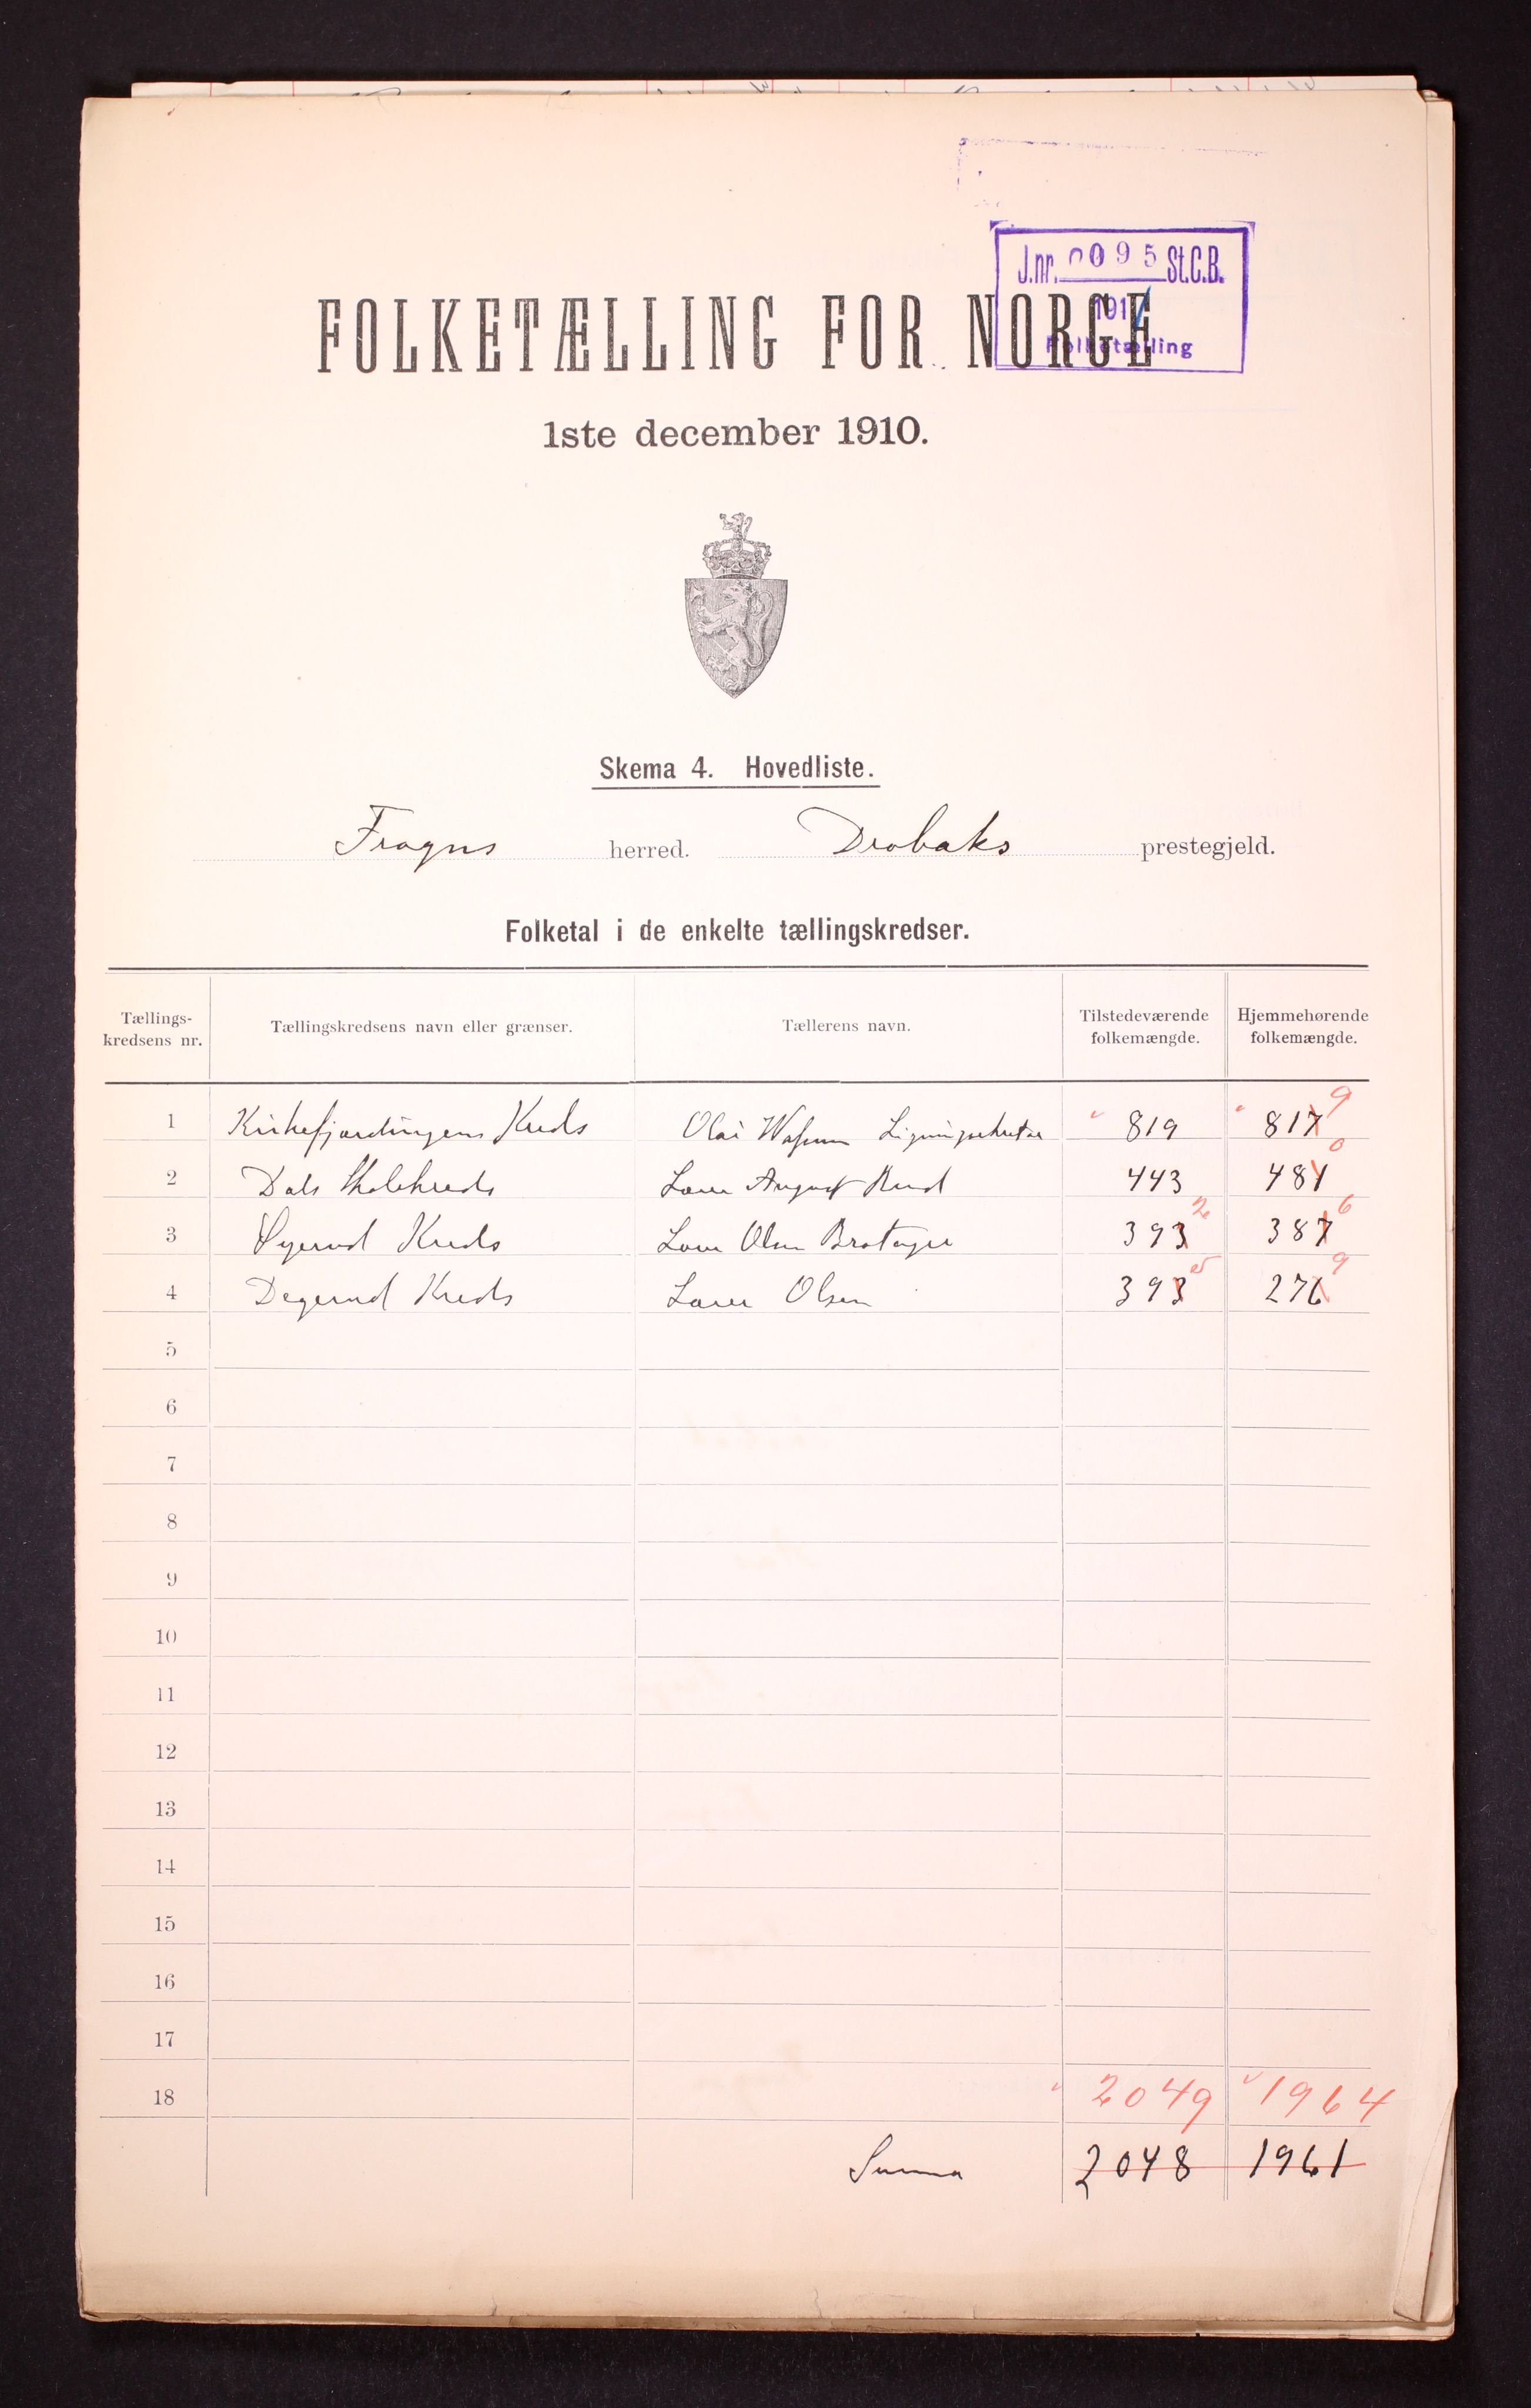 J.nr. 0095 St.C.B.
191
Folketælling
FOLKETÆLLING FOR NORGE
1ste december 1910.
Skema 4. Hovedliste.
Frogns herred. Drøbaks prestegjeld.
Folketal i de enkelte tællingskredser.
Tællings-kredsens nr. Tællingskredsens navn eller grænser. Tællerens navn. Tilstedeværende folkemængde. Hjemmehørende folkemængde.
1 Kirkefjærdingens Kreds Olai 819 817 9
2 Dals Skolekreds Lærer August Ruud 443 481 0
3 Kreds Lærer Olsen 393 2 387 6
4 Degerud Kreds Lærer Olsen 393 5 276 9
5
6
7
8
9
10
11
12
13
14
15
16
17
18 2049 1964
Summa 2048 1961